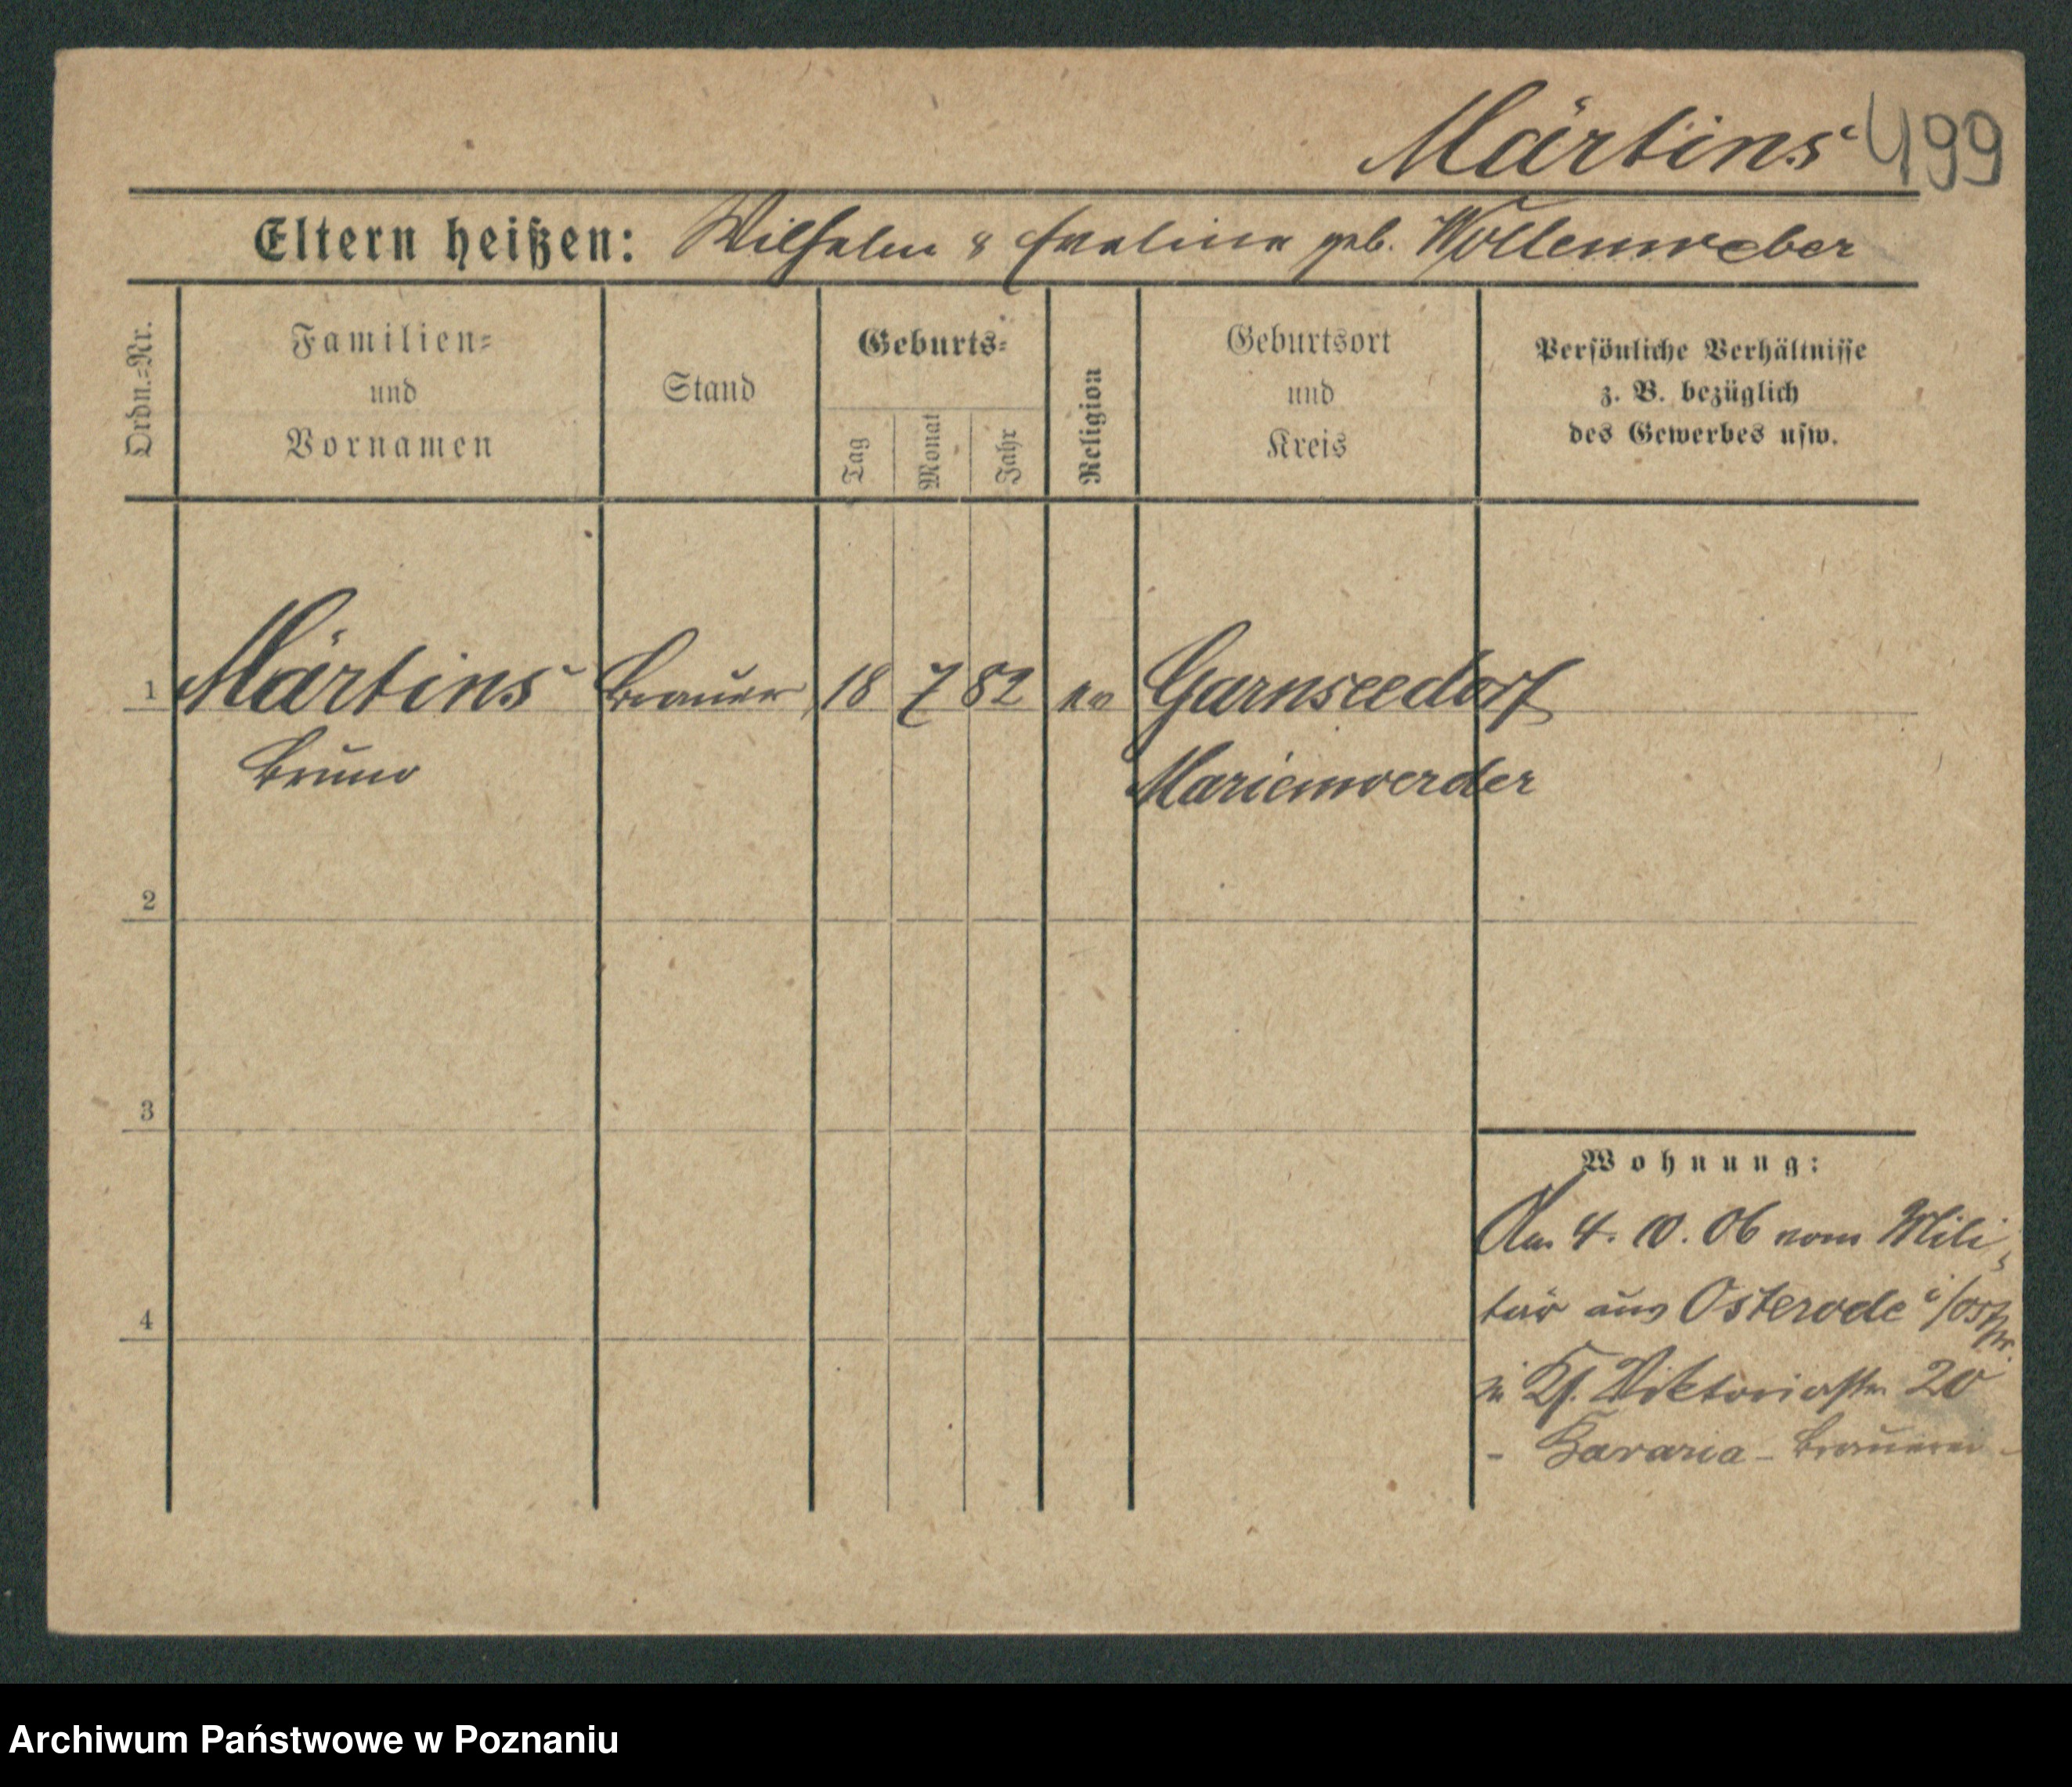 Märtins 499
Eltern heißen: Wilhelm & Eveline geb. Wollenweber
Ordn.=Nr.
Familien=
und
Vornamen
Stand
Geburts=
Tag
Monat
Jahr
Religion
Geburtsort
und
Kreis
Persönliche Verhältnisse
z. B. bezüglich
des Gewerbes usw.
1 Märtins Brauer 18 7 82 ev Garnseedorf
Bruno Marienwerder
2
3
4
Wohnung:
Am 4. 10. 06 vom Mili-
tär aus Osterode i/Ostpr.
in Viktoriastr 20
- Bavaria - Brauerei -
Archiwum Państwowe w Poznaniu